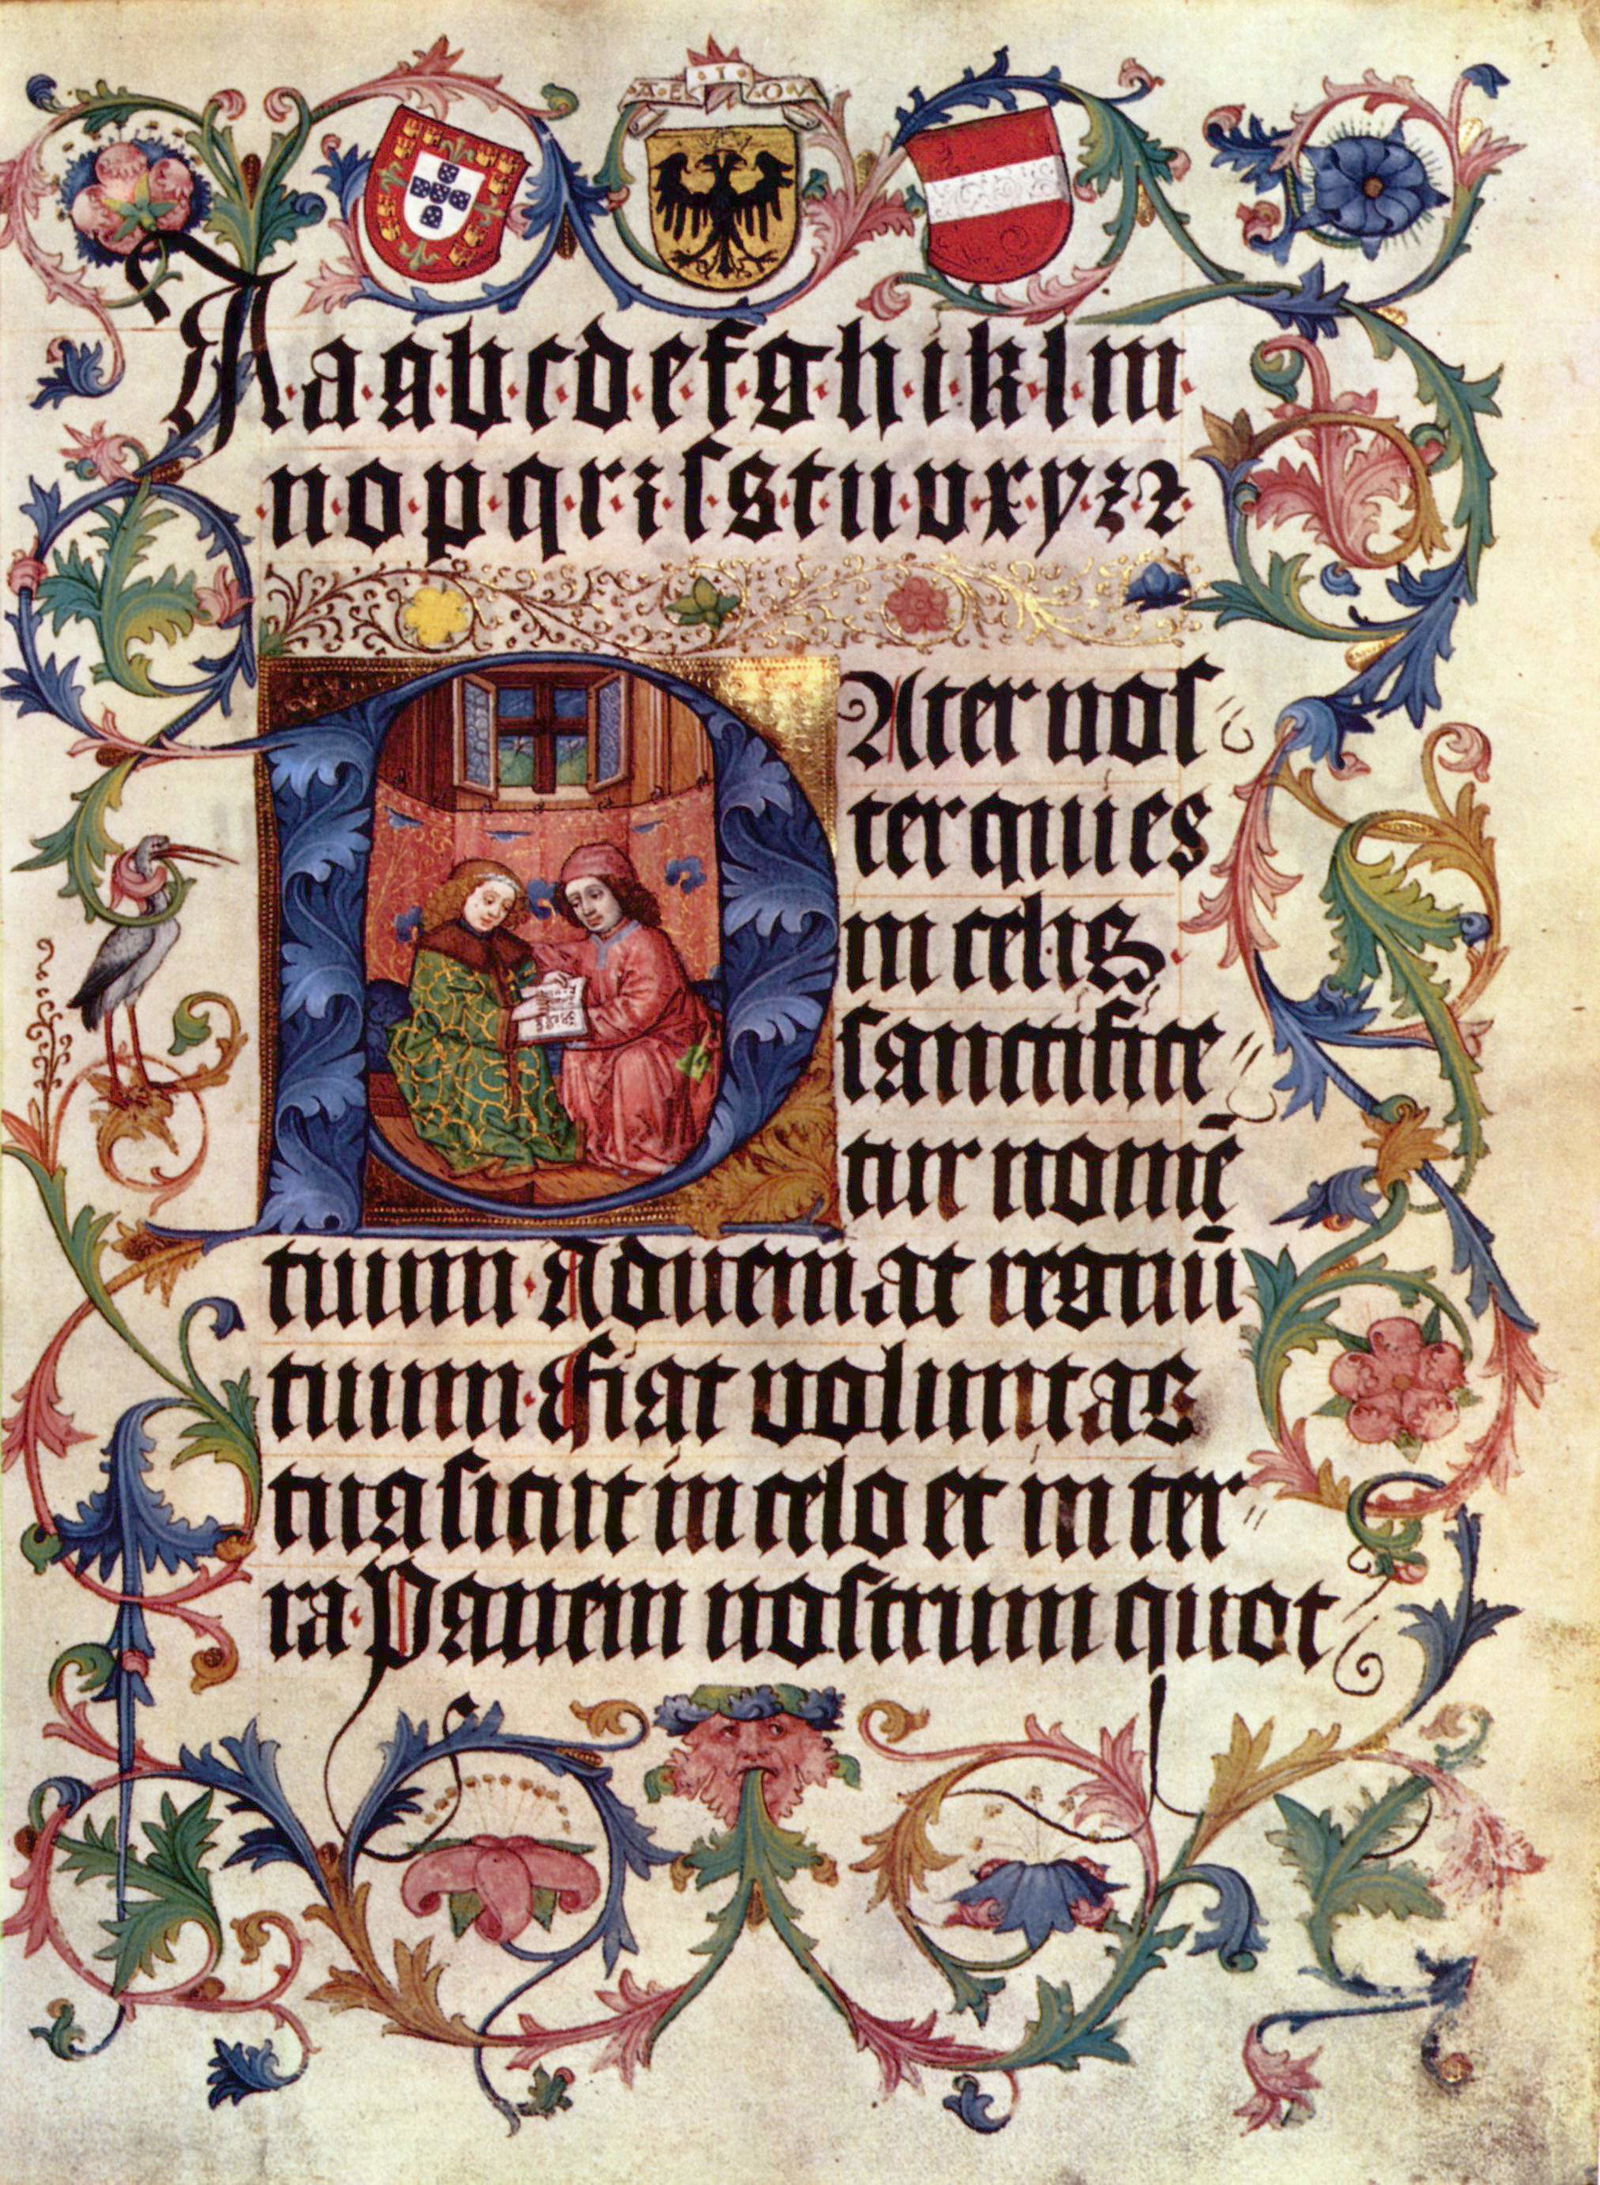 A·E·I·O·V
A·a·a·b·c·d·e·f·g·h·i·k·l·m·
·n·o·p·q·r·i·ſ·s·t·u·v·x·y·z·ꝛ
PAter noſ⸗
ter qui es
in celis·
ſanctifice⸗
tur nomē
tuum·Adueniat regnū
tuum·Fiat voluntas
tua ſicut in celo et in ter⸗
ra·Panem noſtrum quot